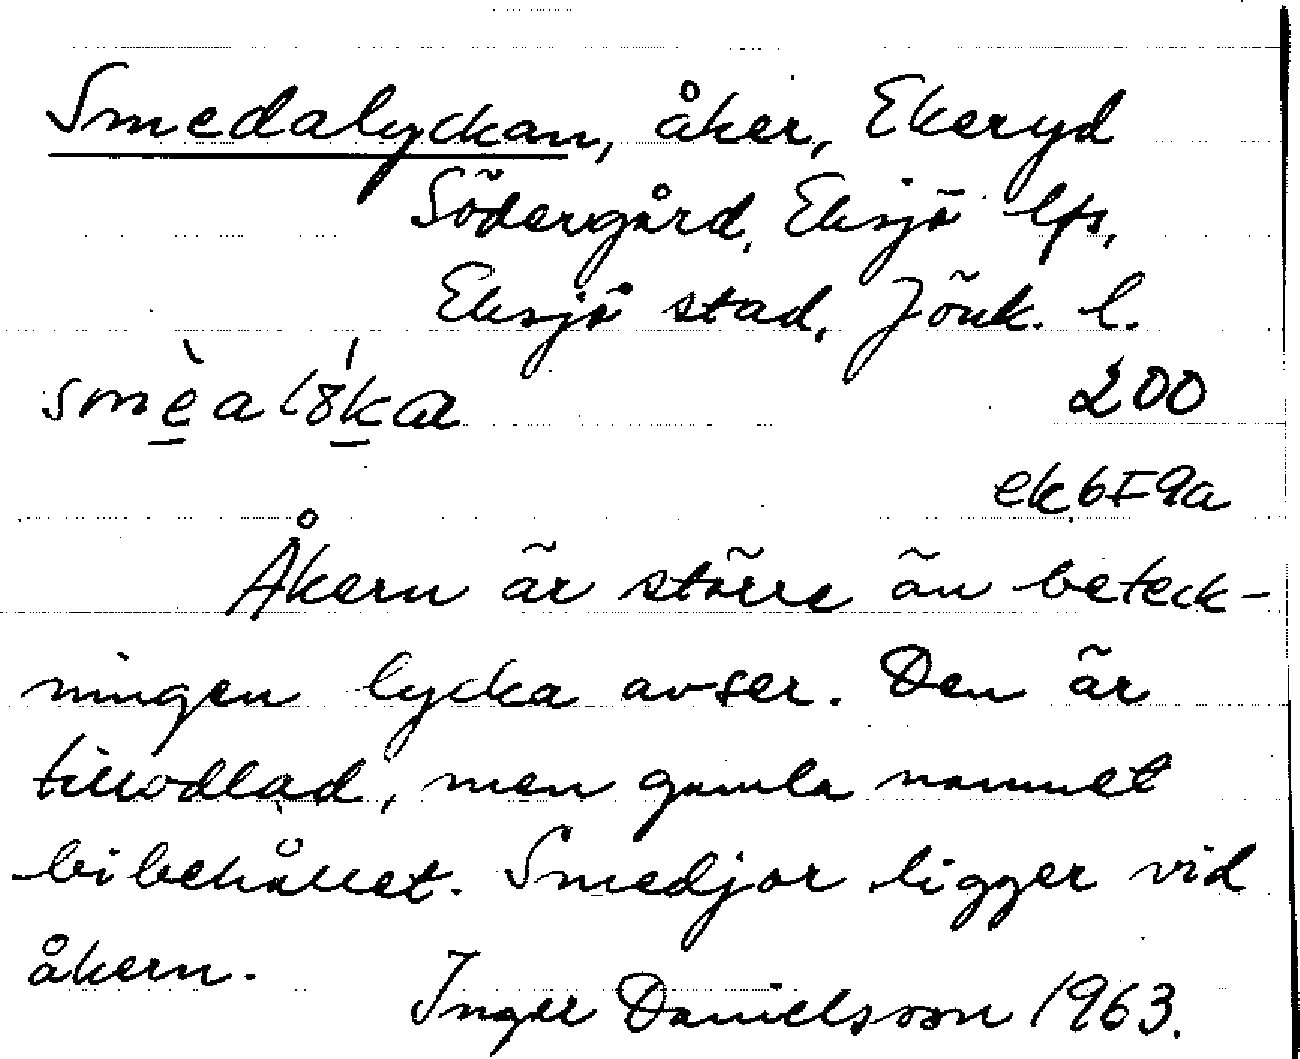 Smedalyckan, åker, Ekeryd
Södergård, Eksjö lfs,
Eksjö stad, Jönk. l.
200
ek. 6F9a
Åkern är större än beteck-
ningen lycka avser. Den är
tillodlad, men gamla namnet
bibehållet. Smedjor ligger vid
åkern.
Inger Danielsson 1963.